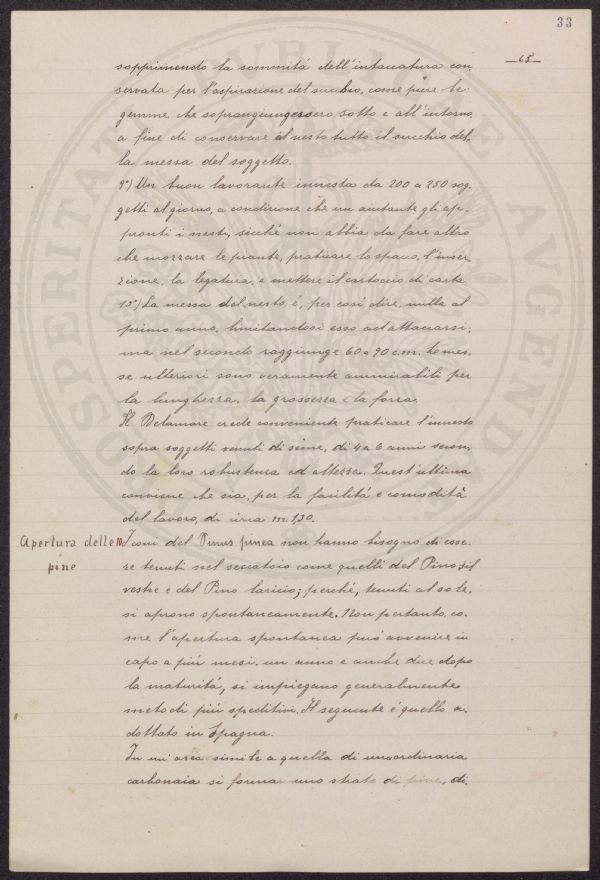 33
—65—
sopprimendo la sommitá dell'intaccatura con
servata per l'aspirazione del succhio, come pure le
gemme che sopraggiungessero sotto e all'intorno,
a fine di conservare al nesto tutto il succhio del,
la messa del soggetto.
9°) Un buon lavorante innesta da 200 a 250 sog,
getti al giorno, a condizione che un aiutante gli ap,
pronti i nesti, sicché non abbia da fare altro
che mozzare le piante, praticare lo spacco, l'inser
zione, la legatura, e mettere il cartoccio di carta
10°) La messa del nesto é, per cosi dire, nulla al
primo anno, limitandosi esso ad attaccarsi;
ma nel secondo raggiunge 60 a 90 c.m. Le mes,
se ulteriori sono veramente ammirabili per
la lunghezza, la grossezza e la forza.
Il Delamare crede conveniente praticare l'innesto
sopra soggetti venuti di seme, di 4 a 6 anni secon,
do la loro robustezza ed altezza. Quest'ultima
conviene che sia, per la facilitá e comodità
del lavoro, di circa m. 1,30.
Apertura delle I coni del Pinus pinea non hanno bisogno di esse,
pine
re tenuti nel seccatoio come quelli del Pino sil
vestre e del Pino laricio; perché, tenuti al sole,
si aprono spontaneamente. Non pertanto, co,
me l'apertura spontanea puó avvenire in
capo a piú mesi, un anno e anche due dopo
la maturitá, si impiegano generalmente
metodi piú speditivi. Il seguente é quello a,
dottato in Ispagna.
In un'area simile a quella di una ordinaria
carbonaia si forma uno strato di pine, di,